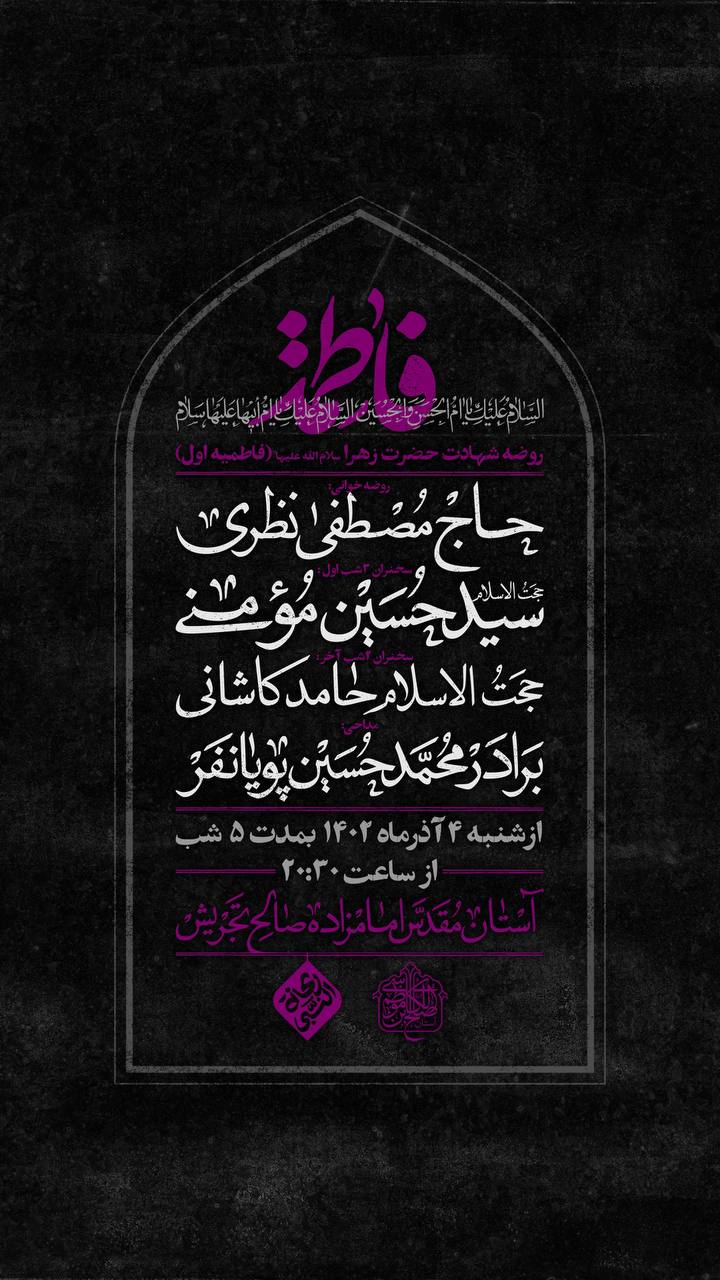 فاطمة
السلام علیك یا ام الحسن والحسین السلام علیك یا ام ابیها علیها سلام
روضه شهادت حضرت زهرا سلام الله علیها (فاطمیه اول)
روضه خوانی:
حاج مصطفی نظری
سخنران ۳شب اول:
حجت الاسلام
سید حسین مؤمنی
سخنران ۲شب آخر:
حجت الاسلام حامد کاشانی
مداحی:
برادر محمد حسین پویانفر
ازشنبه ۴ آذرماه ۱۴۰۲ بمدت ۵ شب
از ساعت ۲۰:۳۰
آستان مقدس امامزاده صالح تجریش
ریحانة النبی